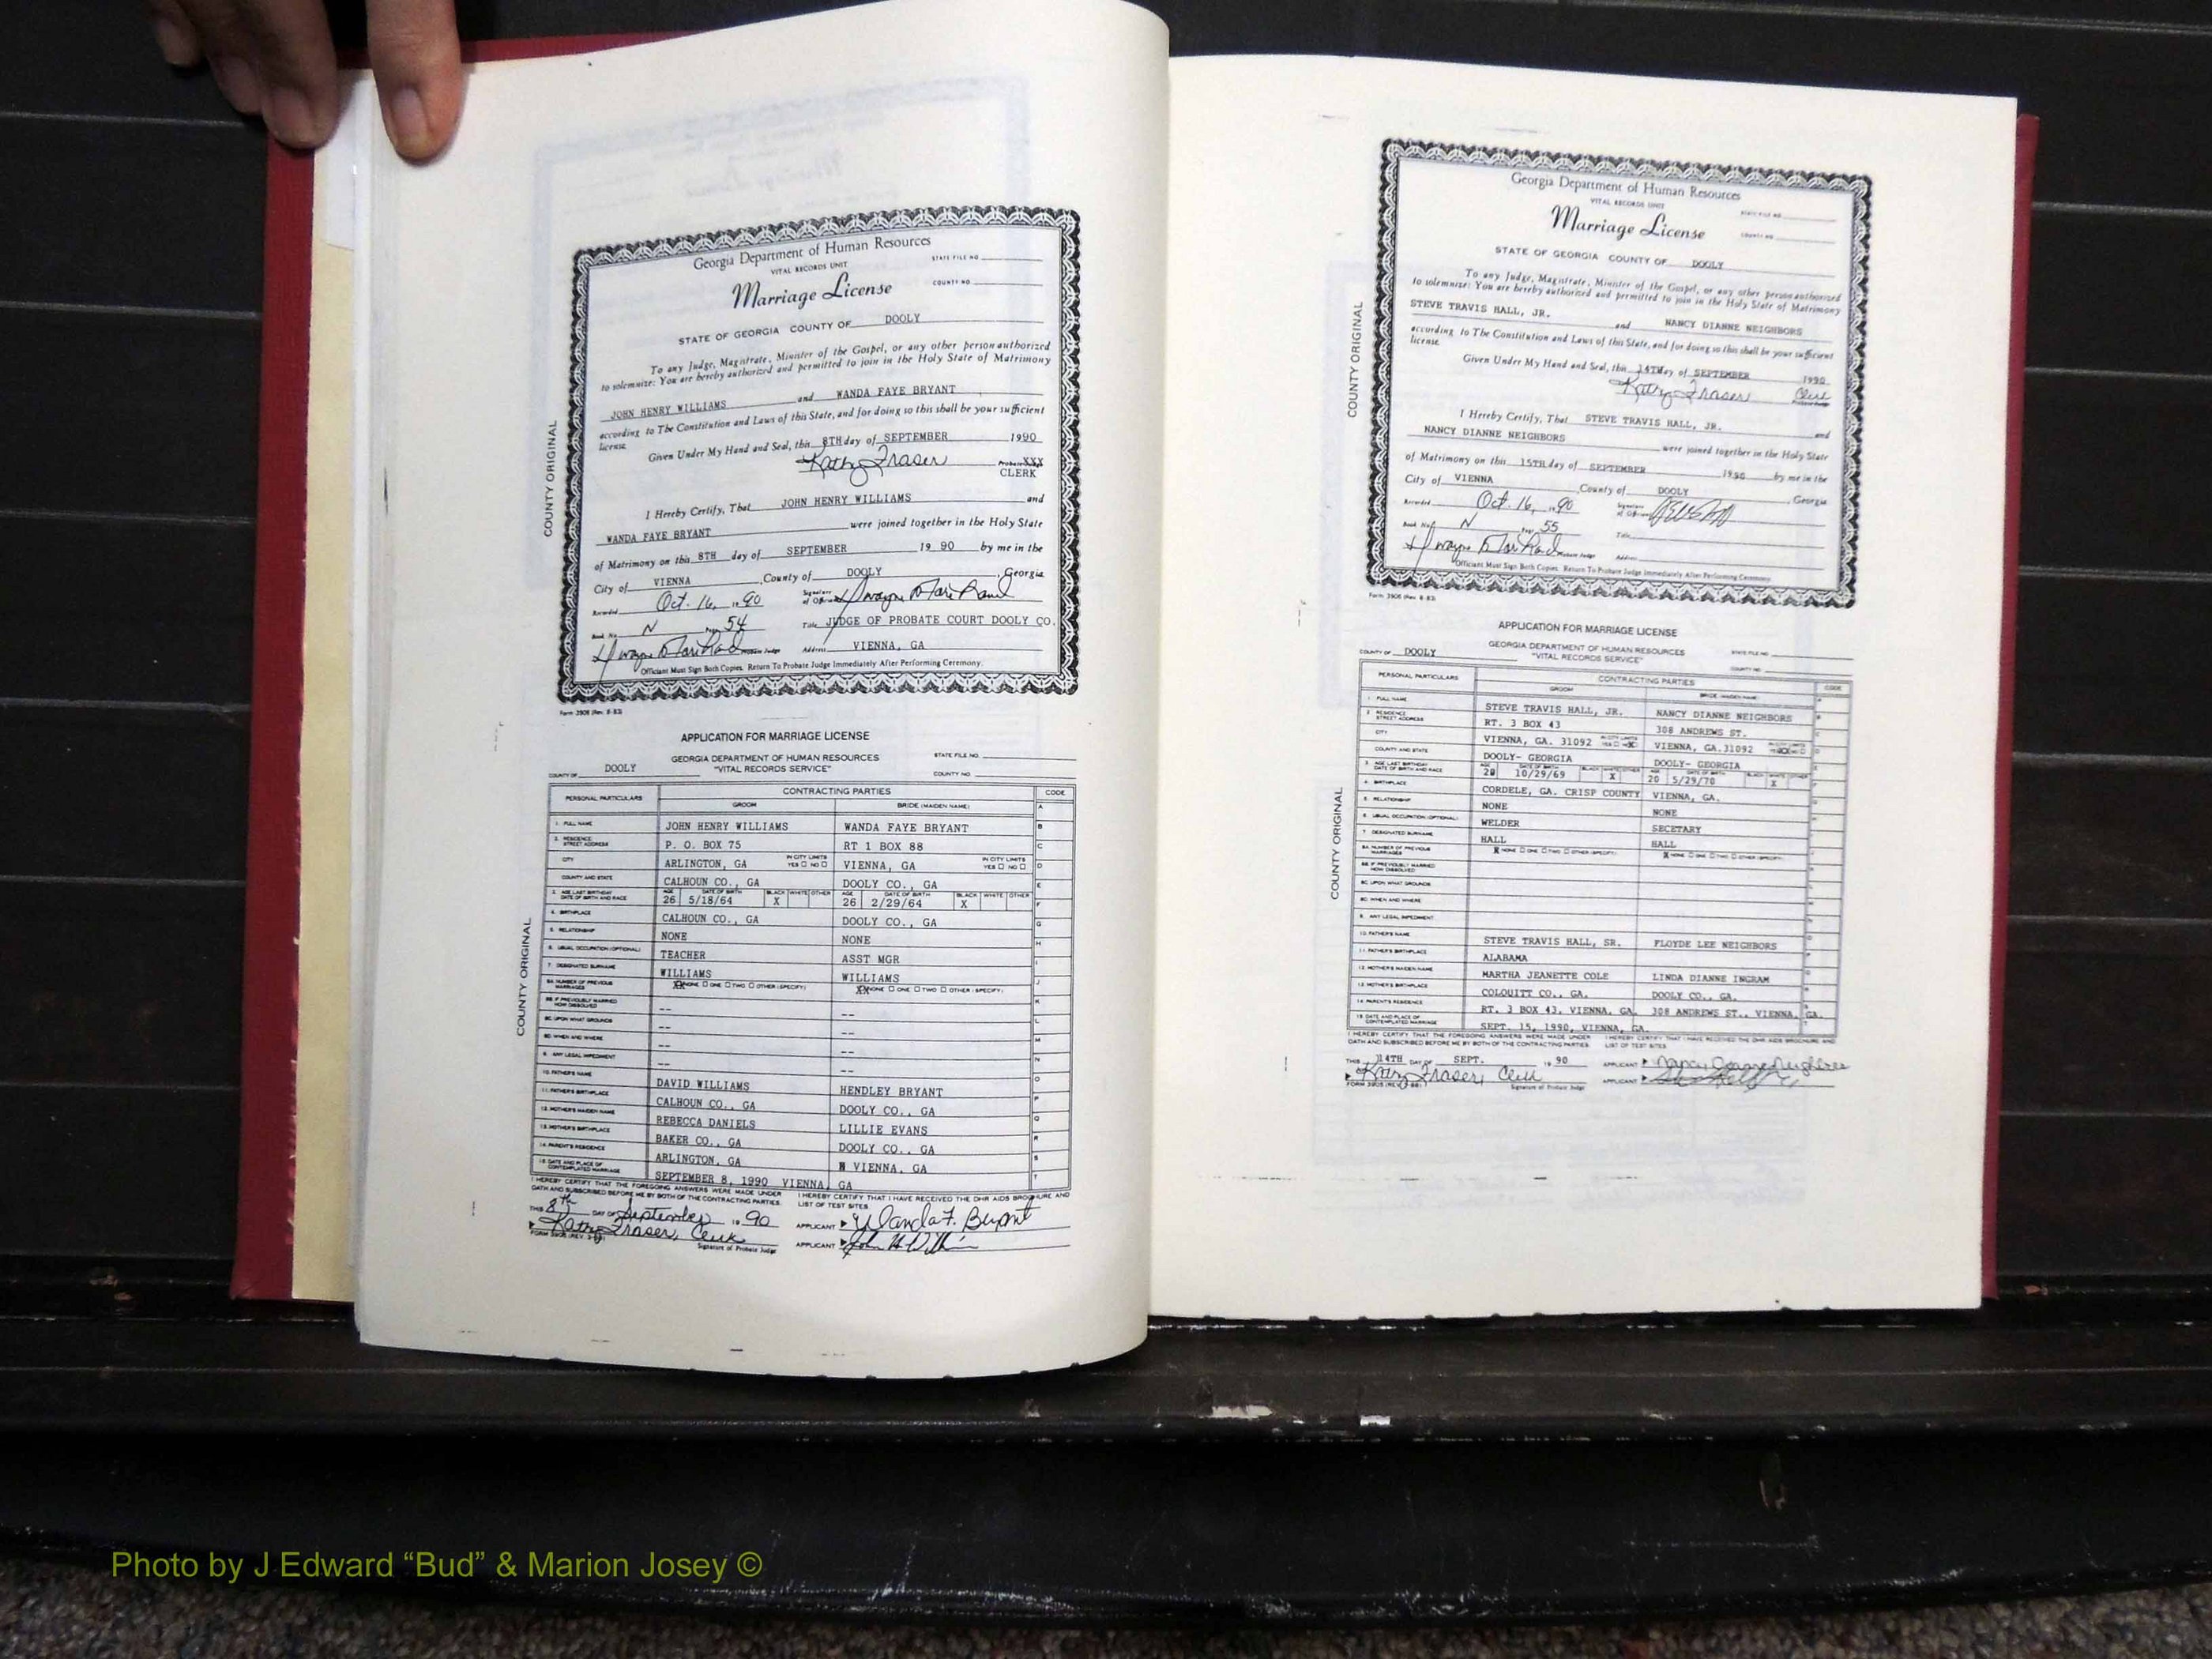 Georgia Department of Human Resources
VITAL RECORDS UNIT
STATE FILE NO.
Marriage License
COUNTY NO.
STATE OF GEORGIA COUNTY OF DOOLY
To any Judge, Magistrate, Minister of the Gospel, or any other person authorized
to solemnize: You are hereby authorized and permitted to join in the Holy State of Matrimony
JOHN HENRY WILLIAMS and WANDA FAYE BRYANT
according to The Constitution and Laws of this State, and for doing so this shall be your sufficient
license.
Given Under My Hand and Seal, this 8TH day of SEPTEMBER 1990
Kathy Fraser Probate Judge XXX
CLERK
I Hereby Certify, That JOHN HENRY WILLIAMS and
WANDA FAYE BRYANT were joined together in the Holy State
of Matrimony on this 8TH day of SEPTEMBER 19 90 by me in the
City of VIENNA, County of DOOLY, Georgia
Recorded Oct. 16, 1990 Signature of Officiant
Book No. N Page 54 Title JUDGE OF PROBATE COURT DOOLY CO.
Probate Judge Address VIENNA, GA
Officiant Must Sign Both Copies. Return To Probate Judge Immediately After Performing Ceremony.
COUNTY ORIGINAL
Form 3908 (Rev. 8-83)
APPLICATION FOR MARRIAGE LICENSE
GEORGIA DEPARTMENT OF HUMAN RESOURCES
STATE FILE NO.
COUNTY OF DOOLY "VITAL RECORDS SERVICE" COUNTY NO.
PERSONAL PARTICULARS CONTRACTING PARTIES CODE
GROOM BRIDE (MAIDEN NAME)
1. FULL NAME JOHN HENRY WILLIAMS WANDA FAYE BRYANT
2. RESIDENCE STREET ADDRESS P. O. BOX 75 RT 1 BOX 88
CITY ARLINGTON, GA IN CITY LIMITS YES NO VIENNA, GA IN CITY LIMITS YES NO
COUNTY AND STATE CALHOUN CO., GA DOOLY CO., GA
3. AGE LAST BIRTHDAY DATE OF BIRTH AND RACE AGE 26 DATE OF BIRTH 5/18/64 BLACK X WHITE OTHER AGE 26 DATE OF BIRTH 2/29/64 BLACK X WHITE OTHER
4. BIRTHPLACE CALHOUN CO., GA DOOLY CO., GA
5. RELATIONSHIP NONE NONE
6. USUAL OCCUPATION (OPTIONAL) TEACHER ASST MGR
7. DESIGNATED SURNAME WILLIAMS WILLIAMS
8A. NUMBER OF PREVIOUS MARRIAGES XX NONE ONE TWO OTHER (SPECIFY) XX NONE ONE TWO OTHER (SPECIFY)
8B. IF PREVIOUSLY MARRIED HOW DISSOLVED -- --
8C. UPON WHAT GROUNDS -- --
8D. WHEN AND WHERE -- --
9. ANY LEGAL IMPEDIMENT -- --
10. FATHER'S NAME DAVID WILLIAMS HENDLEY BRYANT
11. FATHER'S BIRTHPLACE CALHOUN CO., GA DOOLY CO., GA
12. MOTHER'S MAIDEN NAME REBECCA DANIELS LILLIE EVANS
13. MOTHER'S BIRTHPLACE BAKER CO., GA DOOLY CO., GA
14. PARENT'S RESIDENCE ARLINGTON, GA VIENNA, GA
15. DATE AND PLACE OF CONTEMPLATED MARRIAGE SEPTEMBER 8, 1990 VIENNA, GA
I HEREBY CERTIFY THAT THE FOREGOING ANSWERS WERE MADE UNDER OATH AND SUBSCRIBED BEFORE ME BY BOTH OF THE CONTRACTING PARTIES.
I HEREBY CERTIFY THAT I HAVE RECEIVED THE DHR AIDS BROCHURE AND LIST OF TEST SITES.
THIS 8th DAY OF September 19 90 APPLICANT Wanda F. Bryant
Kathy Fraser, Clerk APPLICANT John H Williams
Signature of Probate Judge
COUNTY ORIGINAL
Georgia Department of Human Resources
VITAL RECORDS UNIT
STATE FILE NO.
Marriage License
COUNTY NO.
STATE OF GEORGIA COUNTY OF DOOLY
To any Judge, Magistrate, Minister of the Gospel, or any other person authorized
to solemnize: You are hereby authorized and permitted to join in the Holy State of Matrimony
STEVE TRAVIS HALL, JR. and NANCY DIANNE NEIGHBORS
according to The Constitution and Laws of this State, and for doing so this shall be your sufficient
license.
Given Under My Hand and Seal, this 14TH day of SEPTEMBER 1990
Kathy Fraser Clerk
Probate Judge
I Hereby Certify, That STEVE TRAVIS HALL, JR. and
NANCY DIANNE NEIGHBORS were joined together in the Holy State
of Matrimony on this 15TH day of SEPTEMBER 1990 by me in the
City of VIENNA, County of DOOLY, Georgia
Recorded Oct. 16, 1990 Signature of Officiant
Book No. N Page 55 Title
Probate Judge Address
Officiant Must Sign Both Copies. Return To Probate Judge Immediately After Performing Ceremony.
COUNTY ORIGINAL
Form 3908 (Rev. 8-83)
APPLICATION FOR MARRIAGE LICENSE
GEORGIA DEPARTMENT OF HUMAN RESOURCES
STATE FILE NO.
COUNTY OF DOOLY "VITAL RECORDS SERVICE"
COUNTY NO.
PERSONAL PARTICULARS CONTRACTING PARTIES CODE
GROOM BRIDE (MAIDEN NAME)
1. FULL NAME STEVE TRAVIS HALL, JR. NANCY DIANNE NEIGHBORS
2. RESIDENCE STREET ADDRESS RT. 3 BOX 43 308 ANDREWS ST.
CITY VIENNA, GA. 31092 VIENNA, GA.31092
COUNTY AND STATE DOOLY- GEORGIA DOOLY- GEORGIA
3. AGE LAST BIRTHDAY DATE OF BIRTH AND RACE 20 10/29/69 X 20 5/29/70 X
4. BIRTHPLACE CORDELE, GA. CRISP COUNTY VIENNA, GA.
5. RELATIONSHIP NONE NONE
6. USUAL OCCUPATION (OPTIONAL) WELDER SECETARY
7. DESIGNATED SURNAME HALL HALL
8A. NUMBER OF PREVIOUS MARRIAGES X NONE ONE TWO OTHER (SPECIFY) X NONE ONE TWO OTHER (SPECIFY)
8B. IF PREVIOUSLY MARRIED HOW DISSOLVED
8C. UPON WHAT GROUNDS
8D. WHEN AND WHERE
9. ANY LEGAL IMPEDIMENT
10. FATHER'S NAME STEVE TRAVIS HALL, SR. FLOYDE LEE NEIGHBORS
11. FATHER'S BIRTHPLACE ALABAMA
12. MOTHER'S MAIDEN NAME MARTHA JEANETTE COLE LINDA DIANNE INGRAM
13. MOTHER'S BIRTHPLACE COLQUITT CO., GA. DOOLY CO., GA.
14. PARENT'S RESIDENCE RT. 3 BOX 43, VIENNA, GA. 308 ANDREWS ST., VIENNA, GA.
15. DATE AND PLACE OF CONTEMPLATED MARRIAGE SEPT. 15, 1990, VIENNA, GA.
I HEREBY CERTIFY THAT THE FOREGOING ANSWERS WERE MADE UNDER OATH AND SUBSCRIBED BEFORE ME BY BOTH OF THE CONTRACTING PARTIES.
I HEREBY CERTIFY THAT I HAVE RECEIVED THE DHR AIDS BROCHURE AND LIST OF TEST SITES.
THIS 14TH DAY OF SEPT. 19 90 APPLICANT Nancy Dianne Neighbors
Kathy Fraser, Clerk APPLICANT
Signature of Probate Judge
COUNTY ORIGINAL
Photo by J Edward “Bud” & Marion Josey ©